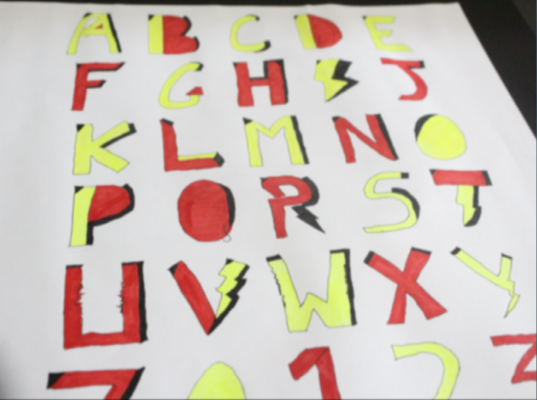 A B C D E
F G H I J
K L M N O
P Q R S T
U V W X Y
Z 0 1 2 3